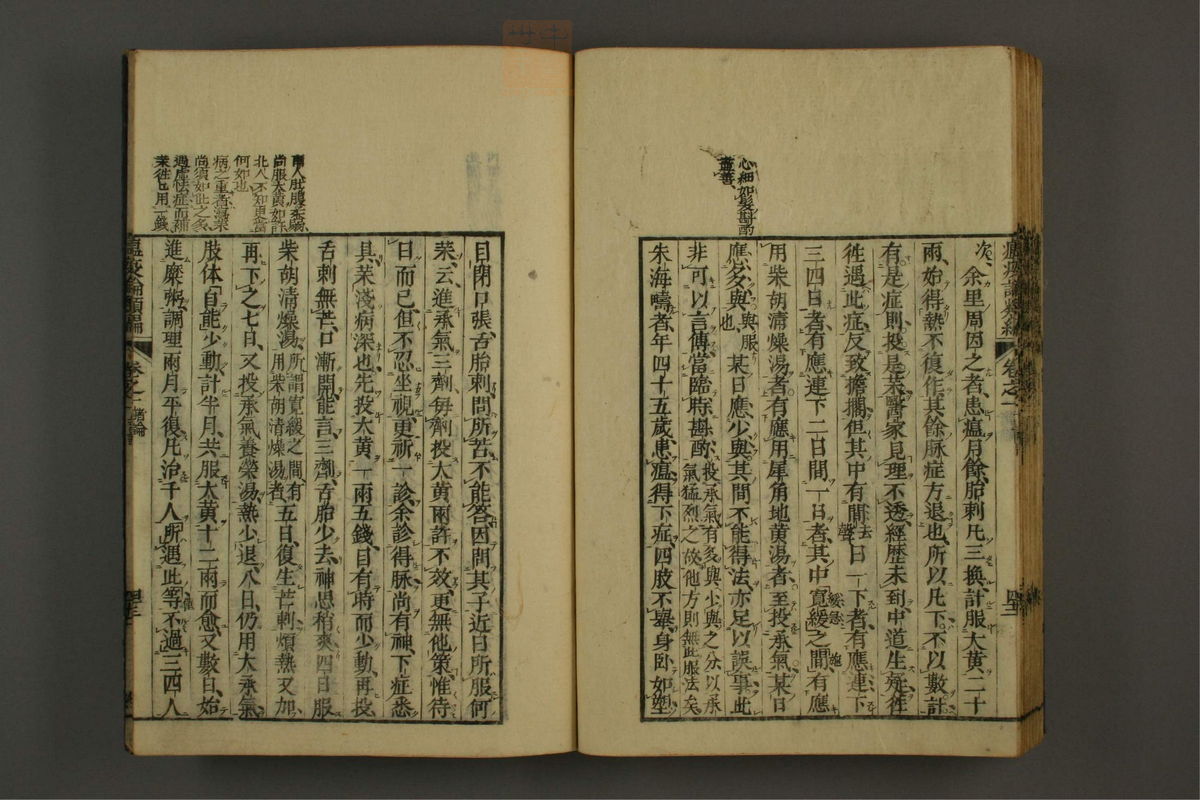 心細如髮斟酌
盡善
次余里周因之者患瘟月餘胎刺凡三換計服大黃二十
兩始得熱不復作其餘脉症方退也所以凡下不以數計
有是症則投是藥醫家見理不透經歷未到中道生疑往
往遇此症反致擔擱但其中有間日一下者有應連下
三四日者有應連下二日間一日者其中寬緩之間有應
用柴胡清燥湯者有應用犀角地黃湯者至投承氣某日
應多與某日應少與其間不能得法亦足以誤事此
非可以言傳當臨時斟酌投承氣有多與少與之分以承
氣猛烈之故他方則無此服法矣
朱海疇者年四十五歲患瘟得下症四肢不舉身臥如塑
南人肚腸柔弱
尚服大黃如許
北人不知更當
何如也
病之重者湯藥
尚須如此之多
遇虛怯症而補
藥往往用一錢
目閉口張舌胎刺問所苦不能答因問其子近日所服何
藥云進承氣三劑每劑投大黃兩許不效更無他策惟待
日而已但不忍坐視更祈一診余診得脉尚有神下症悉
具藥淺病深也先投大黃一兩五錢目有時而少動再投
舌刺無芒口漸開能言三劑舌胎少去神思稍爽四日服
柴胡清燥湯所謂寬緩之間有用柴胡清燥湯者五日復生芒刺煩熱又加
再下之七日又投承氣養榮湯熱少退八日仍用大承氣
肢体自能少動計半月共服大黃十二兩而愈又數日始
進糜粥調理兩月平復凡治千人所遇此等不過三四人